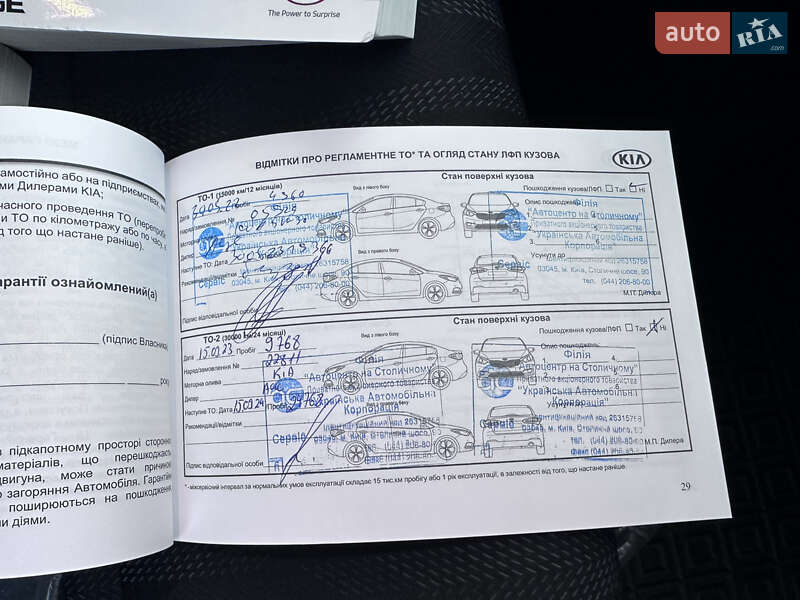 GE
The Power to Surprise
auto RIA .com
самостійно або на підприємствах,
ми Дилерами KIA;
часного проведення ТО
и ТО по кілометражу або по часу,
д того що настане раніше).
арантії ознайомлений(а)
(підпис Власника
рок)
в підкапотному просторі сторонн
матеріалів, що перешкоджають
двигуна, може стати причиною
о загоряння Автомобіля. Гарантійн
поширюються на пошкодження,
ми діями.
ВІДМІТКИ ПРО РЕГЛАМЕНТНЕ ТО* ТА ОГЛЯД СТАНУ ЛФП КУЗОВА
KIA
ТО-1 (15000 км/12 місяців)
Стан поверхні кузова
Дата Пробіг 4360
Вид з лівого боку
Пошкодження кузова/ЛФП Так Ні
Наряд/замовлення №
Опис пошкоджень
Моторна олива
Дилер
Вид з правого боку
Наступне ТО: Дата
Усунути до
Рекомендації/відмітки
Підпис відповідальної особи
М.П. Дилера
Філія
"Автоцентр на Столичному"
Приватного акціонерного товариства
"Українська Автомобільна
Корпорація"
Ідентифікаційний код 26315768
Сервіс 03045, м. Київ, Столичне шосе, 90
тел. (044) 206-80-00
ТО-2 (30000 км/24 місяці)
Стан поверхні кузова
Дата 15.09.23 Пробіг 9768
Вид з лівого боку
Пошкодження кузова/ЛФП Так Ні
Наряд/замовлення № 22811
Опис пошкоджень
Моторна олива KIA
Дилер
Вид з правого боку
Наступне ТО: Дата 15.09.24 Пробіг 24768
Усунути до
Рекомендації/відмітки
Підпис відповідальної особи
М.П. Дилера
Філія
"Автоцентр на Столичному"
Приватного акціонерного товариства
"Українська Автомобільна
Корпорація"
Ідентифікаційний код 26315768
Сервіс 03045, м. Київ, Столичне шосе, 90
тел. (044) 206-80-00
* - міжсервісний інтервал за нормальних умов експлуатації складає 15 тис.км пробігу або 1 рік експлуатації, в залежності від того, що настане раніше.
29